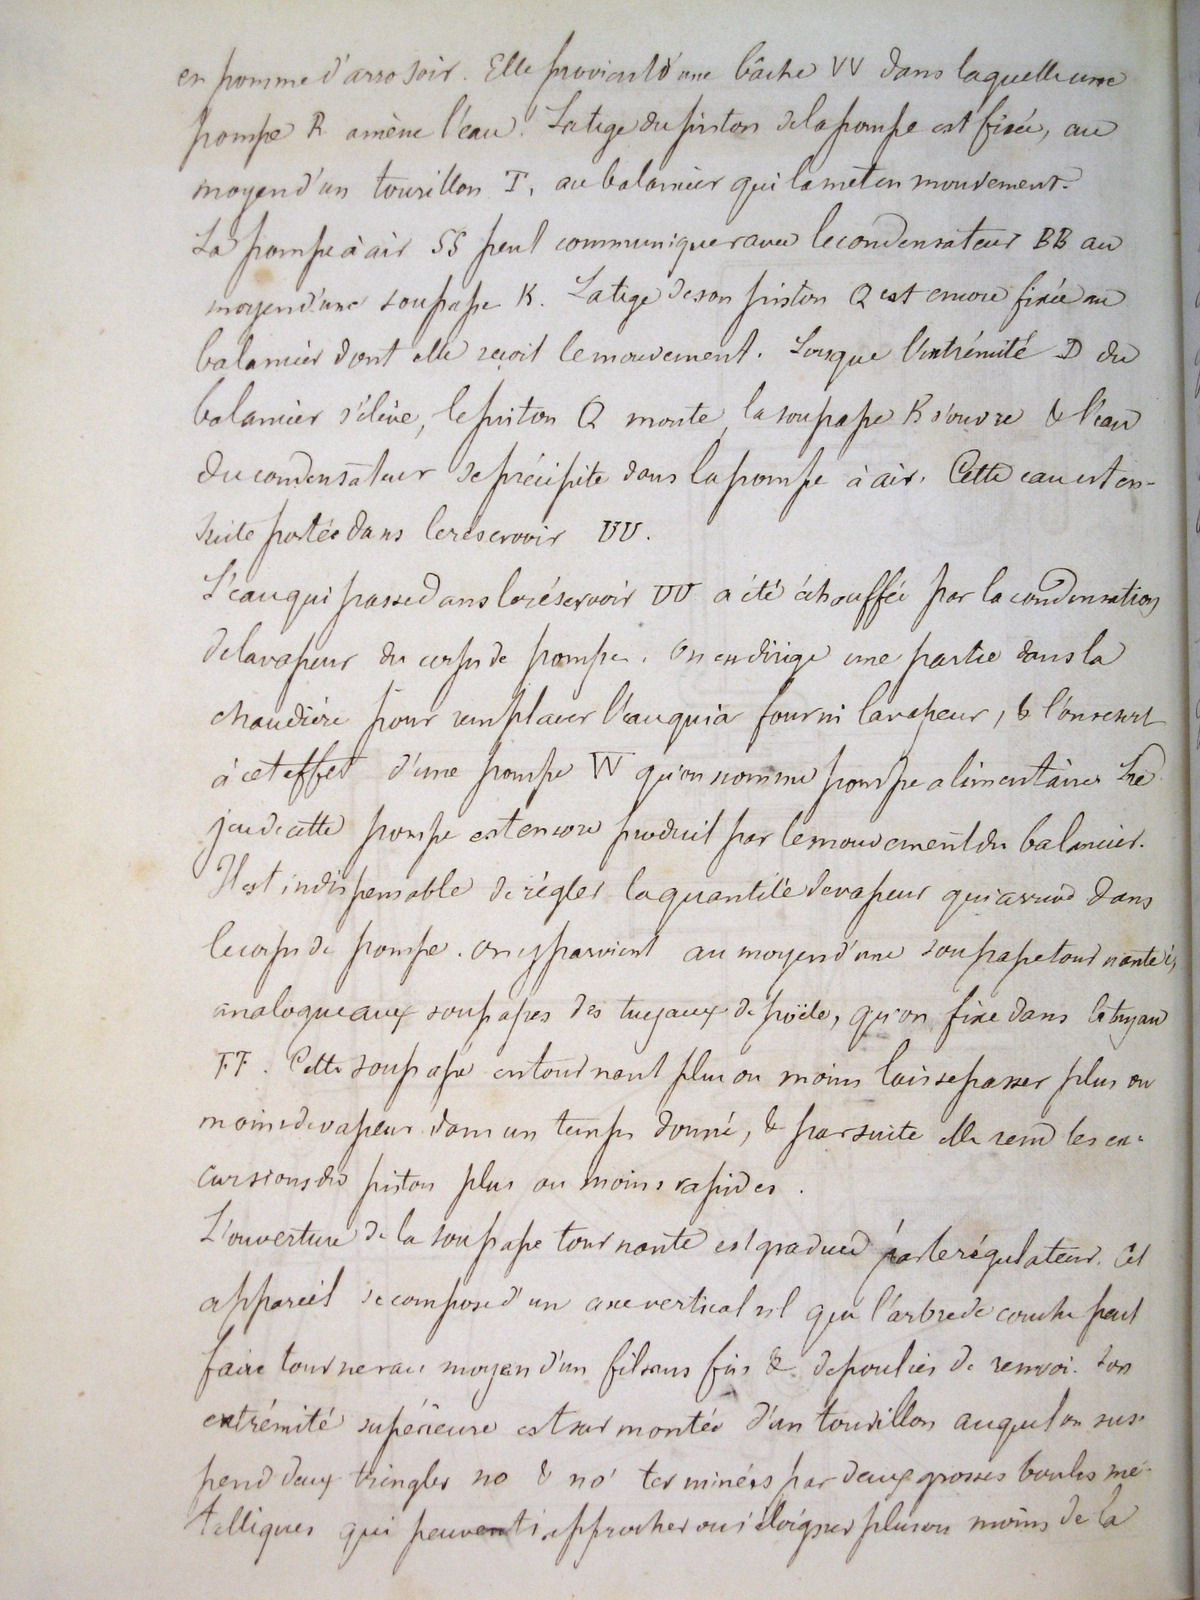 en pomme d'arrosoir. Elle provient d'une bâche VV dans laquelle une
pompe R amène l'eau. La tige du piston de la pompe est fixée, au
moyen d'un tourillon T, au balancier qui la met en mouvement.
La pompe à air SS peut communiquer avec le condensateur BB au
moyen d'une soupape K. La tige de son piston Q est encore fixée au
balancier dont elle reçoit le mouvement. Lorsque l'extrémité D du
balancier s'élève, le piston Q monte, la soupape K s'ouvre & l'eau
du condensateur se précipite dans la pompe à air. Cette eau est en-
suite portée dans le réservoir UU.
L'eau qui passe dans le réservoir UU a été échauffée par la condensation
de la vapeur du corps de pompe. On en dirige une partie dans la
chaudière pour remplacer l'eau qui a fourni la vapeur, & l'on se sert
à cet effet d'une pompe W qu'on nomme pompe alimentaire. Le
jeu de cette pompe est encore produit par le mouvement du balancier.
Il est indispensable de régler la quantité de vapeur qui arrive dans
le corps de pompe. On y parvient au moyen d'une soupape tournante i,
analogue aux soupapes des tuyaux de poële, qu'on fixe dans le tuyau
FF. Cette soupape en tournant plus ou moins laisse passer plus ou
moins de vapeur dans un temps donné, & par suite elle rend les ex-
cursions du piston plus ou moins rapides.
L'ouverture de la soupape tournante est graduée par le régulateur. Cet
appareil se compose d'un axe vertical nl que l'arbre de couche peut
faire tourner au moyen d'un fil sans fin & de poulies de renvoi. Son
extrémité supérieure est surmontée d'un tourillon auquel on sus-
pend deux tringles no & no' terminées par deux grosses boules mé-
talliques qui peuvent s'approcher ou s'éloigner plus ou moins de la